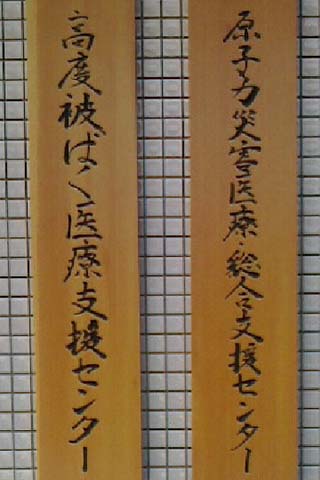 原子力災害医療・総合支援センター
高度被ばく医療支援センター